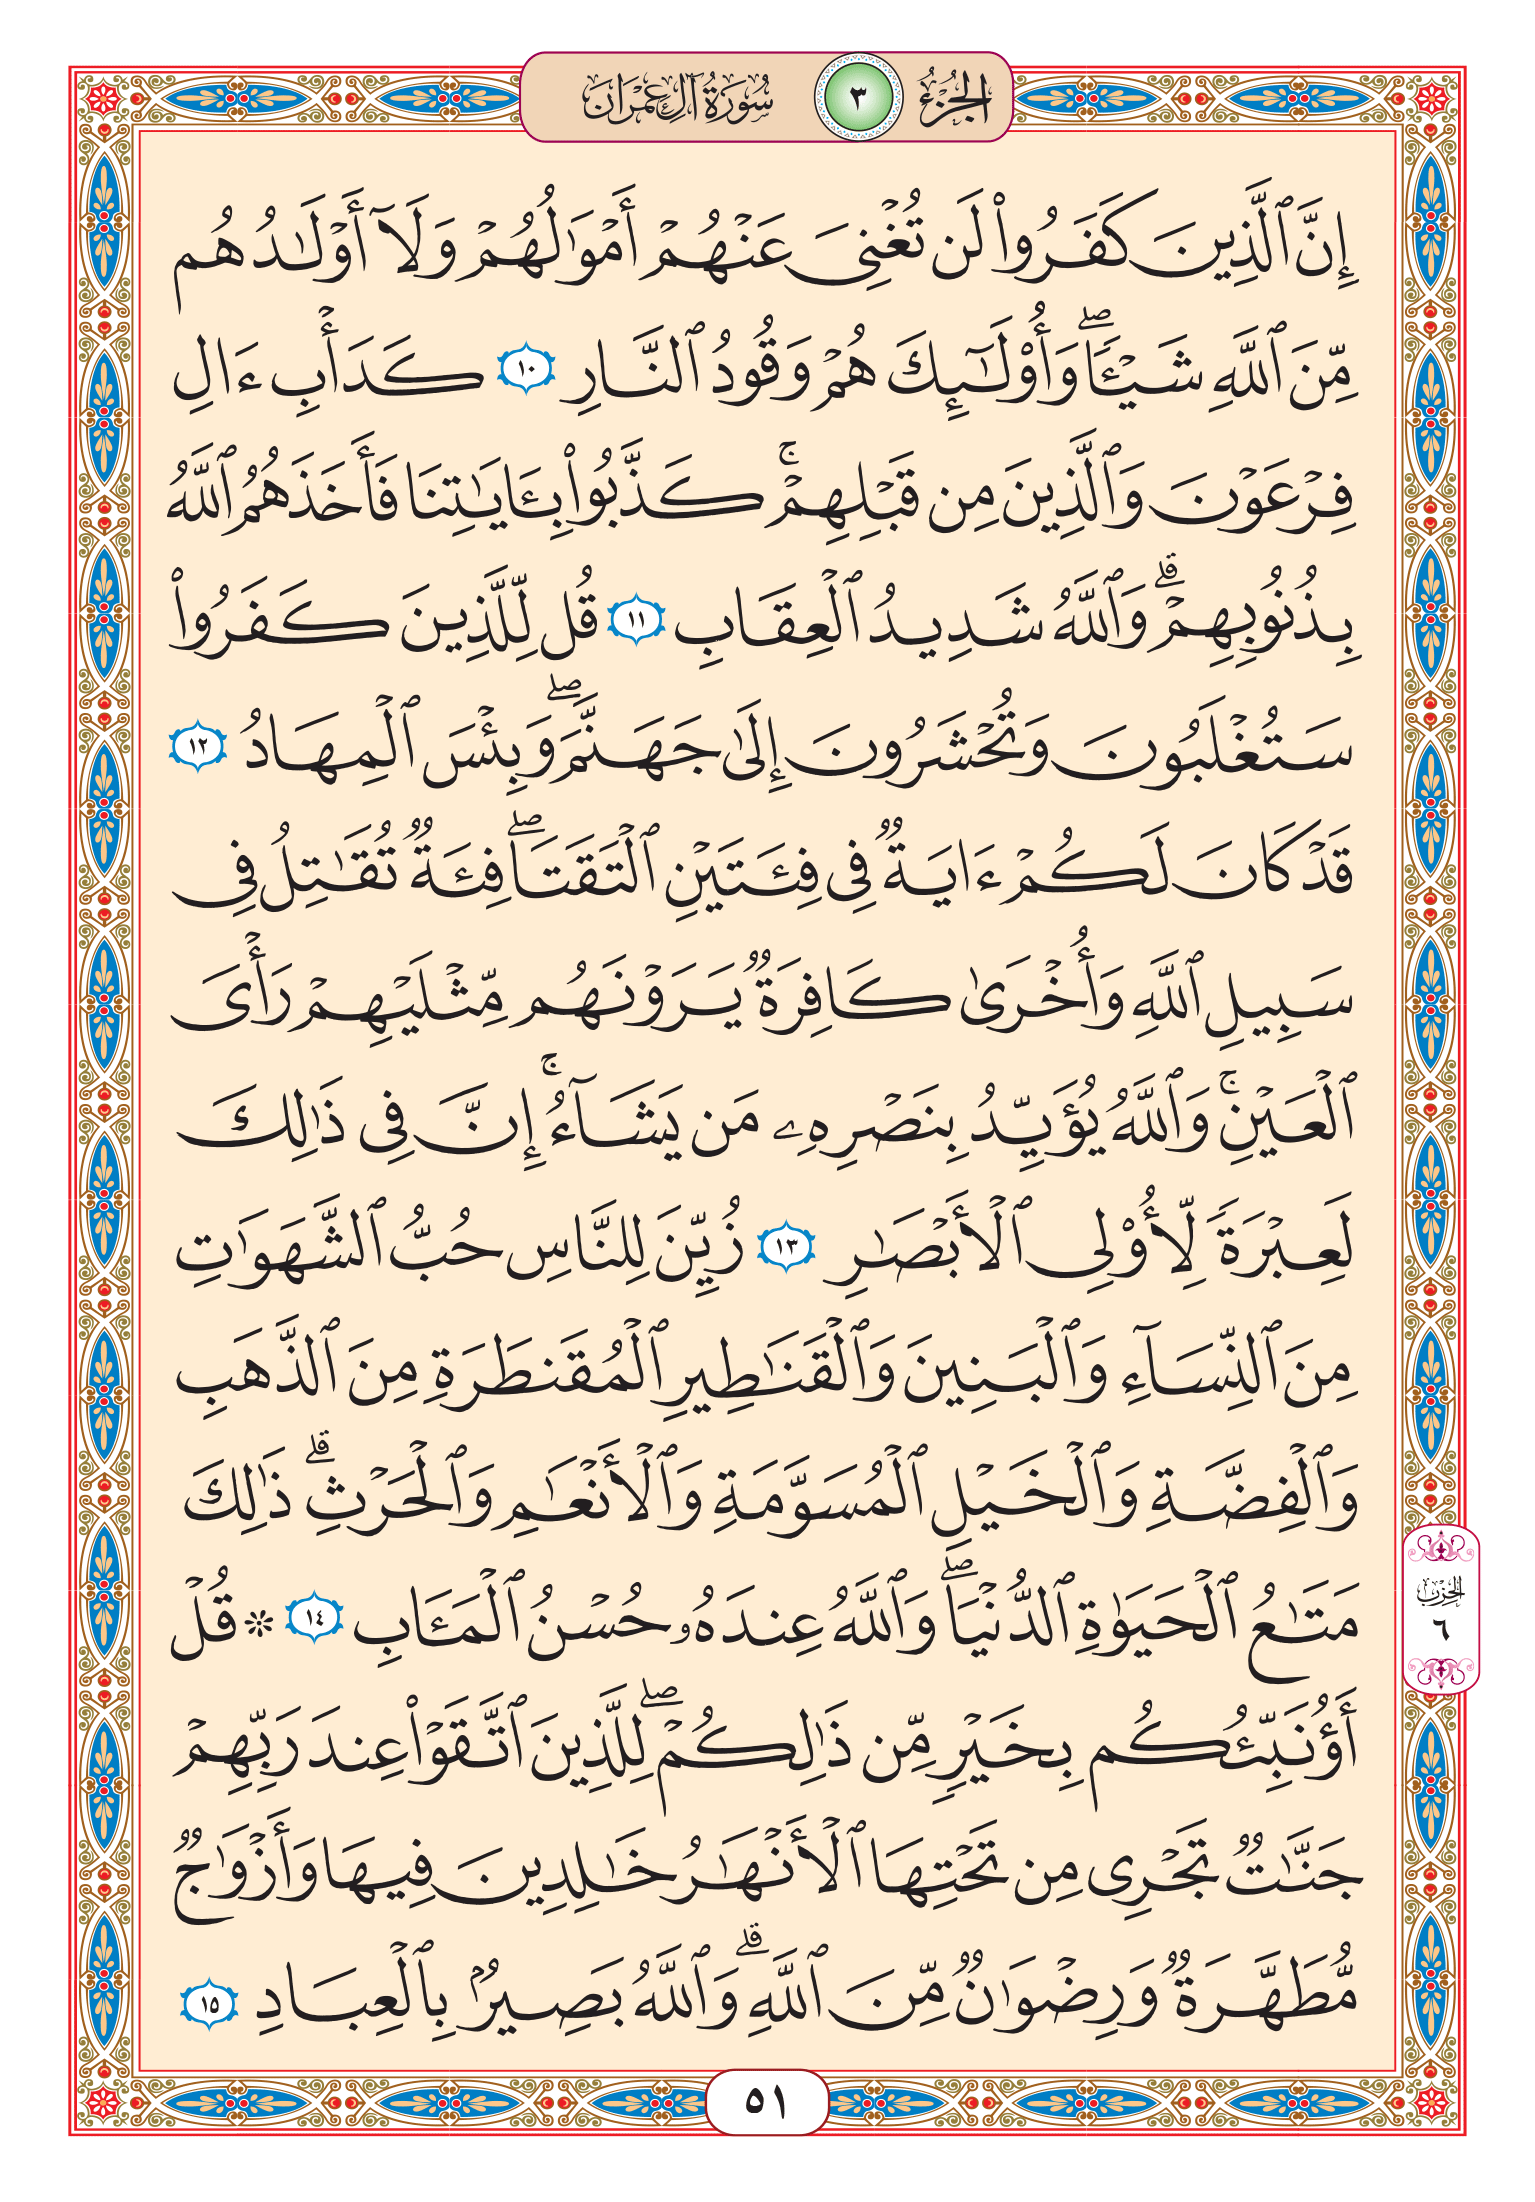 سُورَةُ آلِ عِمْرَان ٣ الجُزْءُ
إِنَّ ٱلَّذِينَ كَفَرُوا۟ لَن تُغْنِىَ عَنْهُمْ أَمْوَٰلُهُمْ وَلَآ أَوْلَـٰدُهُم
مِّنَ ٱللَّهِ شَيْـًٔا ۖ وَأُو۟لَـٰٓئِكَ هُمْ وَقُودُ ٱلنَّارِ ١٠ كَدَأْبِ ءَالِ
فِرْعَوْنَ وَٱلَّذِينَ مِن قَبْلِهِمْ ۚ كَذَّبُوا۟ بِـَٔايَـٰتِنَا فَأَخَذَهُمُ ٱللَّهُ
بِذُنُوبِهِمْ ۗ وَٱللَّهُ شَدِيدُ ٱلْعِقَابِ ١١ قُل لِّلَّذِينَ كَفَرُوا۟
سَتُغْلَبُونَ وَتُحْشَرُونَ إِلَىٰ جَهَنَّمَ ۖ وَبِئْسَ ٱلْمِهَادُ ١٢
قَدْ كَانَ لَكُمْ ءَايَةٌ فِى فِئَتَيْنِ ٱلْتَقَتَا ۖ فِئَةٌ تُقَـٰتِلُ فِى
سَبِيلِ ٱللَّهِ وَأُخْرَىٰ كَافِرَةٌ يَرَوْنَهُم مِّثْلَيْهِمْ رَأْىَ
ٱلْعَيْنِ ۚ وَٱللَّهُ يُؤَيِّدُ بِنَصْرِهِۦ مَن يَشَآءُ ۚ إِنَّ فِى ذَٰلِكَ
لَعِبْرَةً لِّأُو۟لِى ٱلْأَبْصَـٰرِ ١٣ زُيِّنَ لِلنَّاسِ حُبُّ ٱلشَّهَوَٰتِ
مِنَ ٱلنِّسَآءِ وَٱلْبَنِينَ وَٱلْقَنَـٰطِيرِ ٱلْمُقَنطَرَةِ مِنَ ٱلذَّهَبِ
وَٱلْفِضَّةِ وَٱلْخَيْلِ ٱلْمُسَوَّمَةِ وَٱلْأَنْعَـٰمِ وَٱلْحَرْثِ ۗ ذَٰلِكَ
مَتَـٰعُ ٱلْحَيَوٰةِ ٱلدُّنْيَا ۖ وَٱللَّهُ عِندَهُۥ حُسْنُ ٱلْمَـَٔابِ ١٤ ۞ قُلْ
أَؤُنَبِّئُكُم بِخَيْرٍ مِّن ذَٰلِكُمْ ۖ لِلَّذِينَ ٱتَّقَوْا۟ عِندَ رَبِّهِمْ
جَنَّـٰتٌ تَجْرِى مِن تَحْتِهَا ٱلْأَنْهَـٰرُ خَـٰلِدِينَ فِيهَا وَأَزْوَٰجٌ
مُّطَهَّرَةٌ وَرِضْوَٰنٌ مِّنَ ٱللَّهِ ۗ وَٱللَّهُ بَصِيرٌۢ بِٱلْعِبَادِ ١٥
الحِزْب
٦
٥١